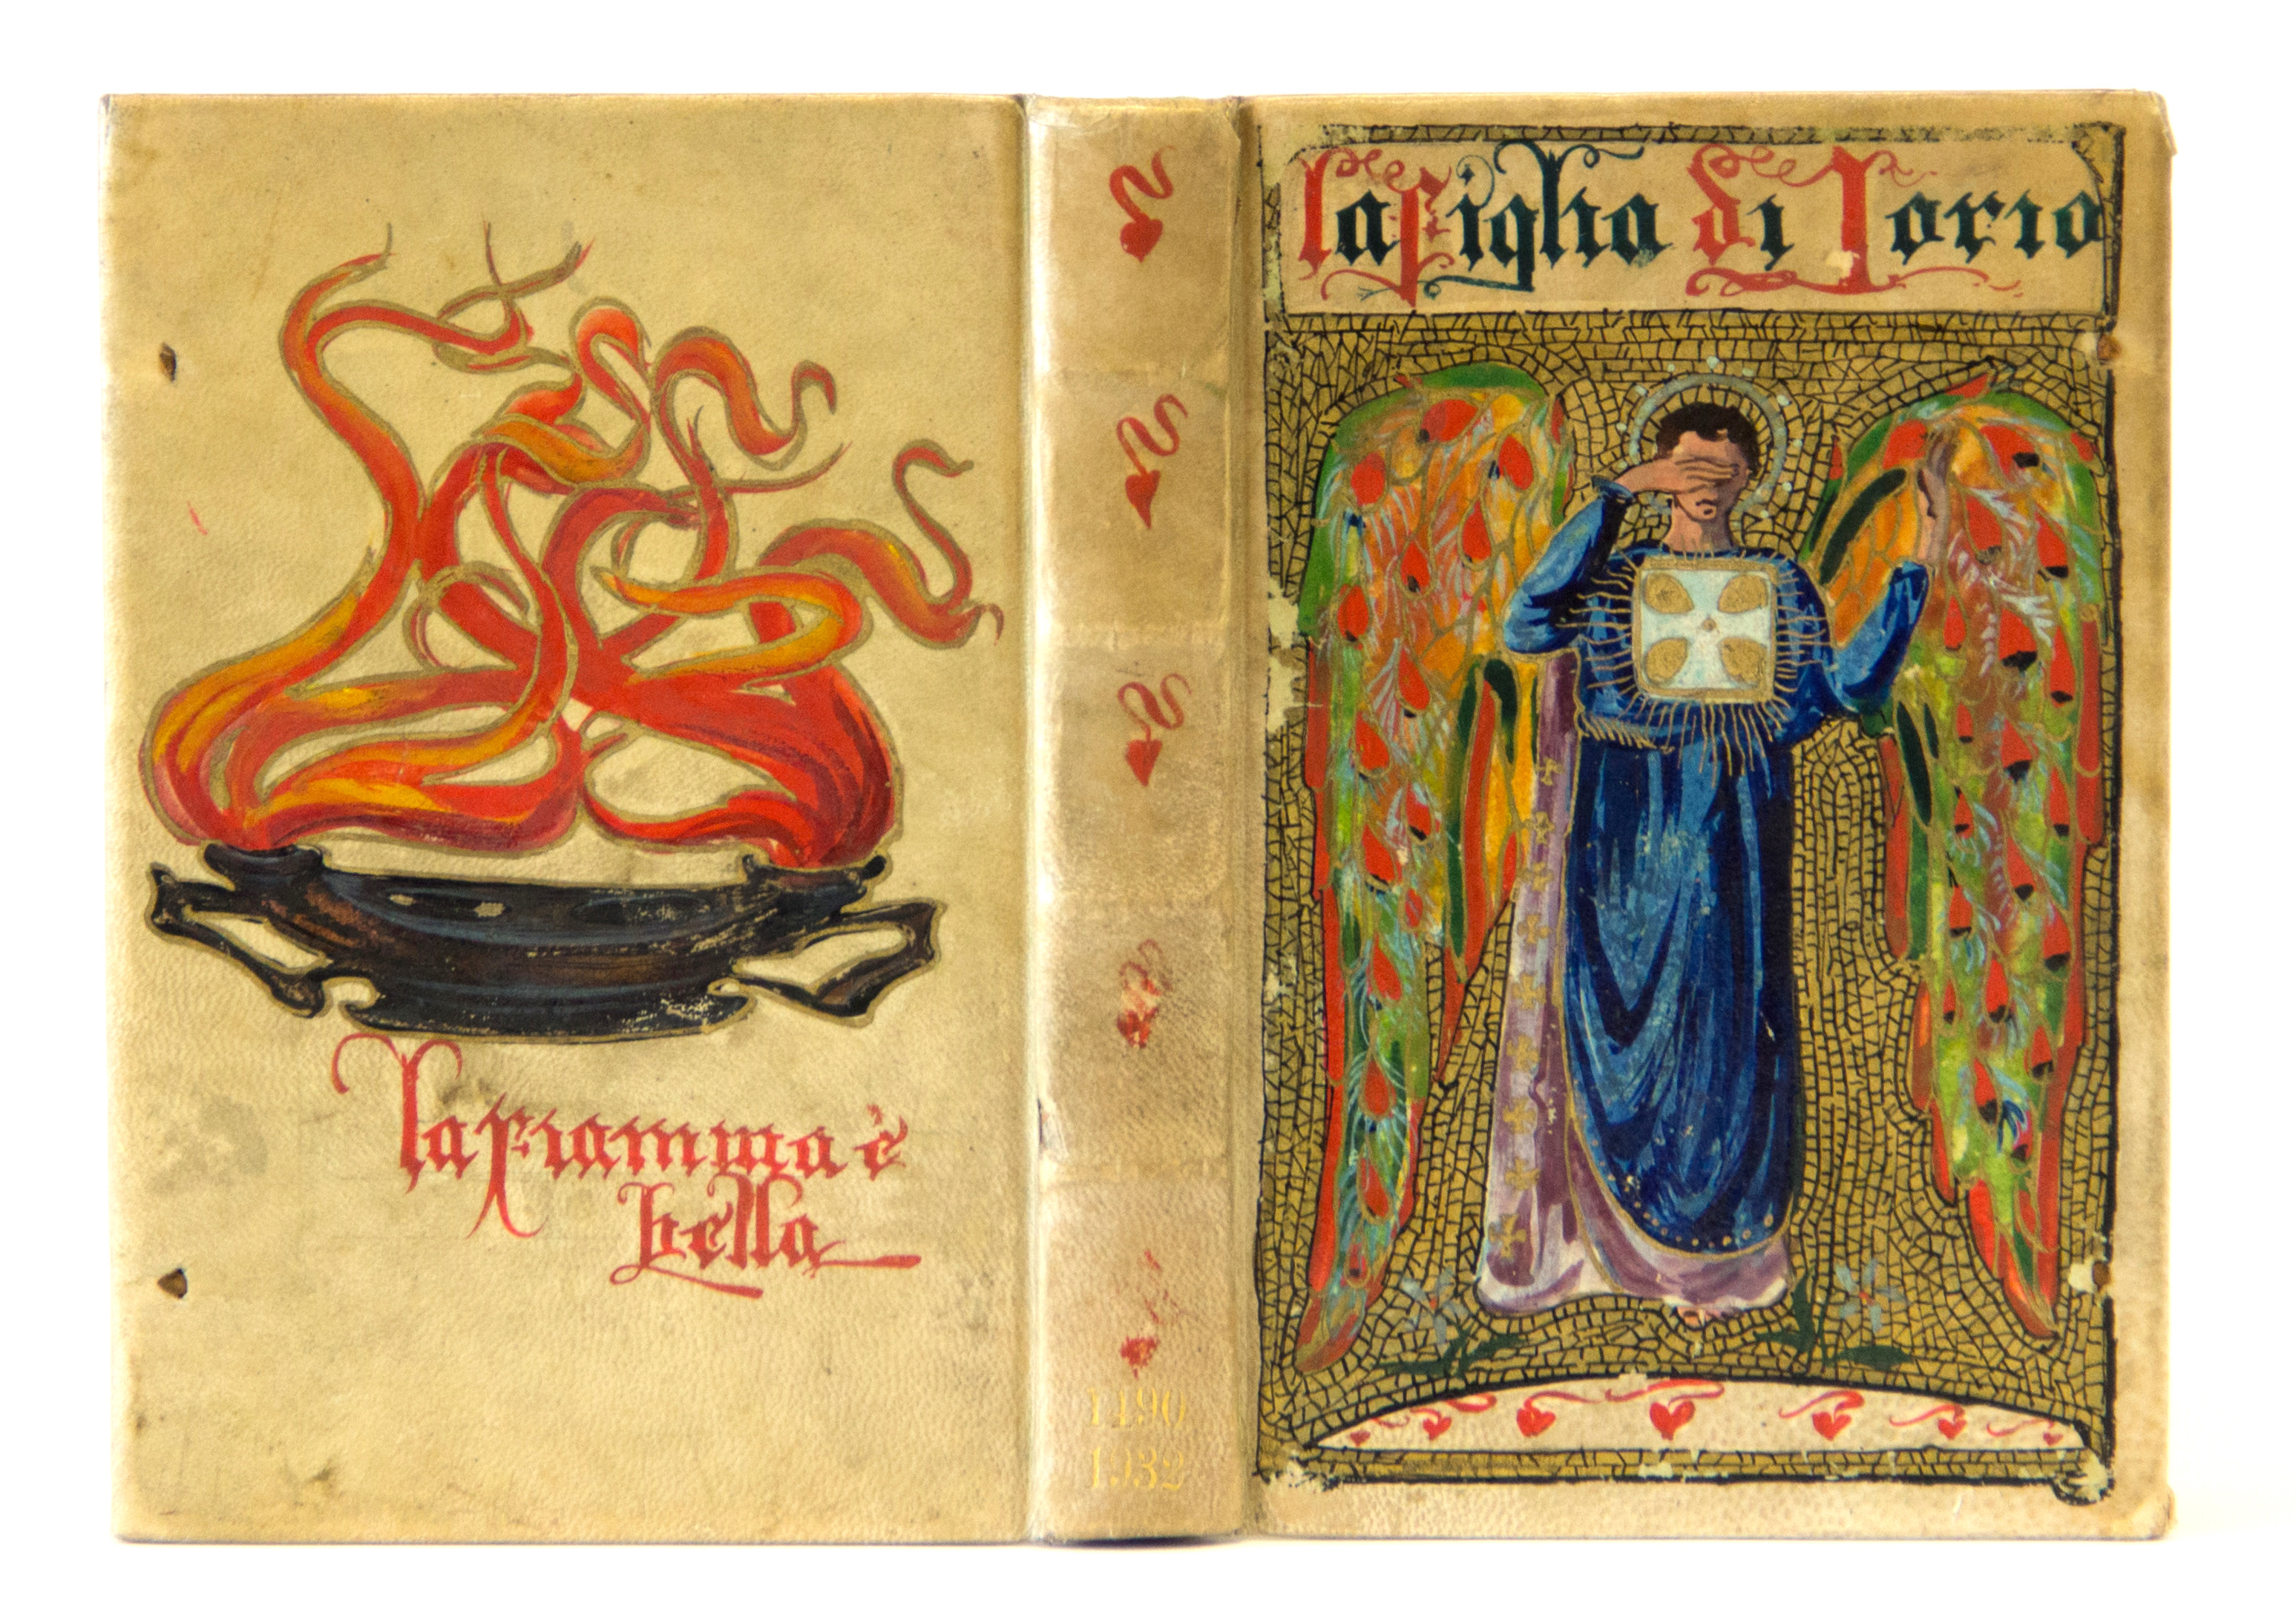 la fiamma è
bella
1490
1932
la figlia di Iorio